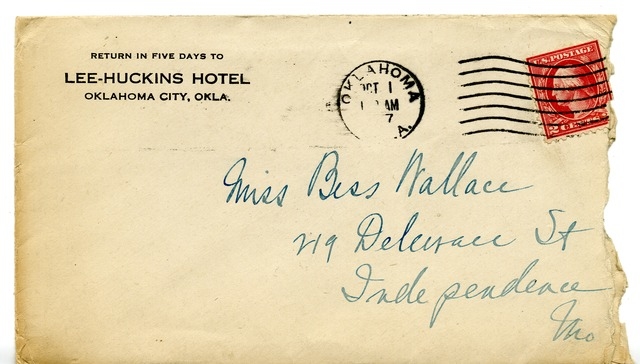 RETURN IN FIVE DAYS TO
LEE-HUCKINS HOTEL
OKLAHOMA CITY, OKLA.
OKLAHOMA
OCT 1
AM
7
A.
U.S. POSTAGE
2 CENTS 2
Miss Bess Wallace
219 Delaware St
Independence
Mo